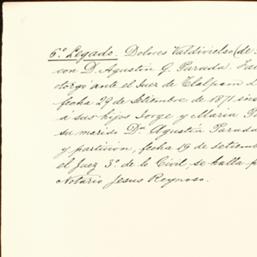 6º Legado. Dolores Valdivielso (de
con D. Agustin G. Parada.
otorgo ante el Juez de Tlalpam
fecha 29 de Setiembre de 1871
á sus hijos Jorge y Maria
su marido Dn Agustin Parada
y particion, fecha 19 de Setiem
el Juez 3º de lo Civil, se halla
Notario Jesus Reynoso.